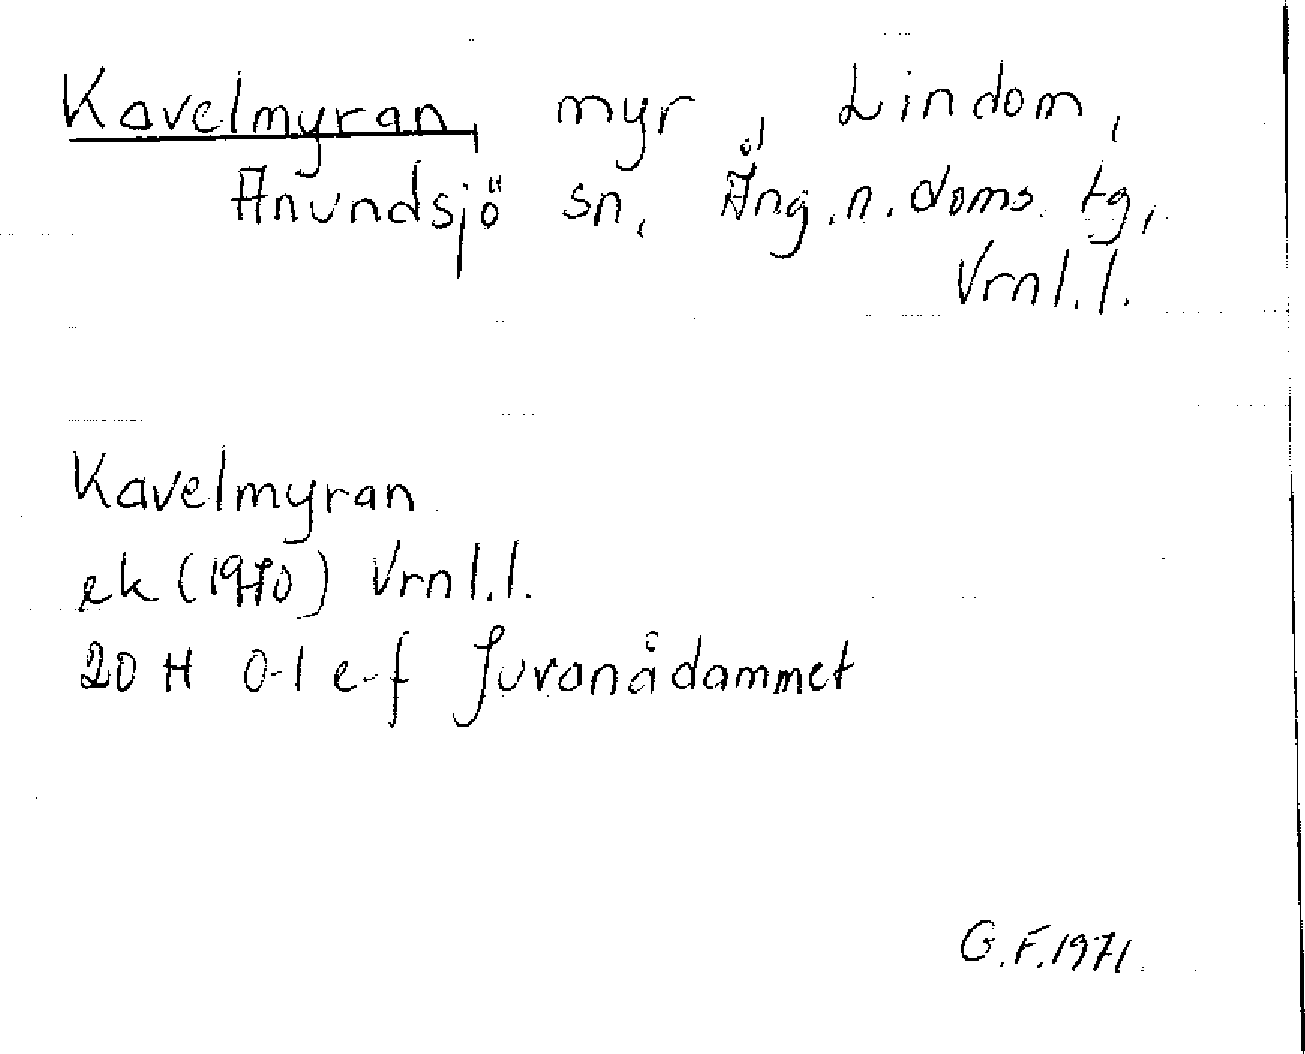 Kavelmyran, myr, Lindom,
Anundsjö sn, Ång.n.doms.tg,
Vrnl.l.
Kavelmyran
ek (1970) Vrnl.l.
20 H 0-1 e-f Juvanådammet
G.F.1971.